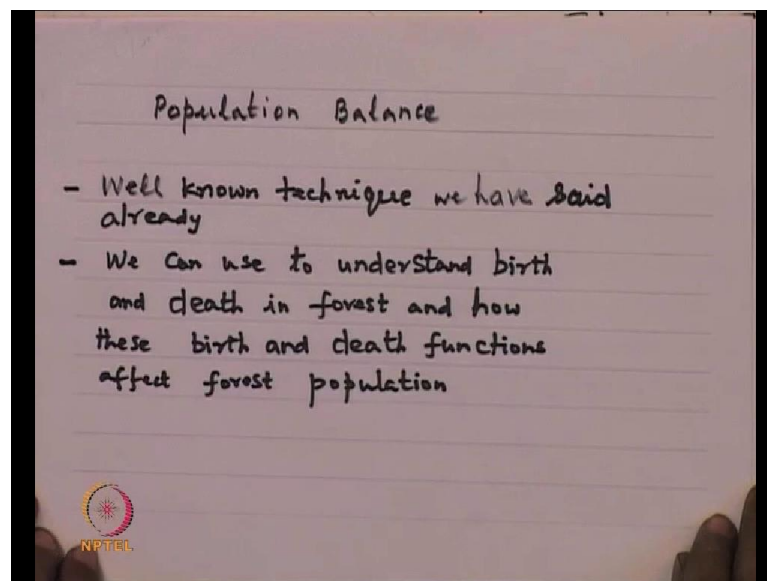 Population Balance
- Well known technique we have said
already
- We can use to understand birth
and death in forest and how
these birth and death functions
affect forest population
NPTEL